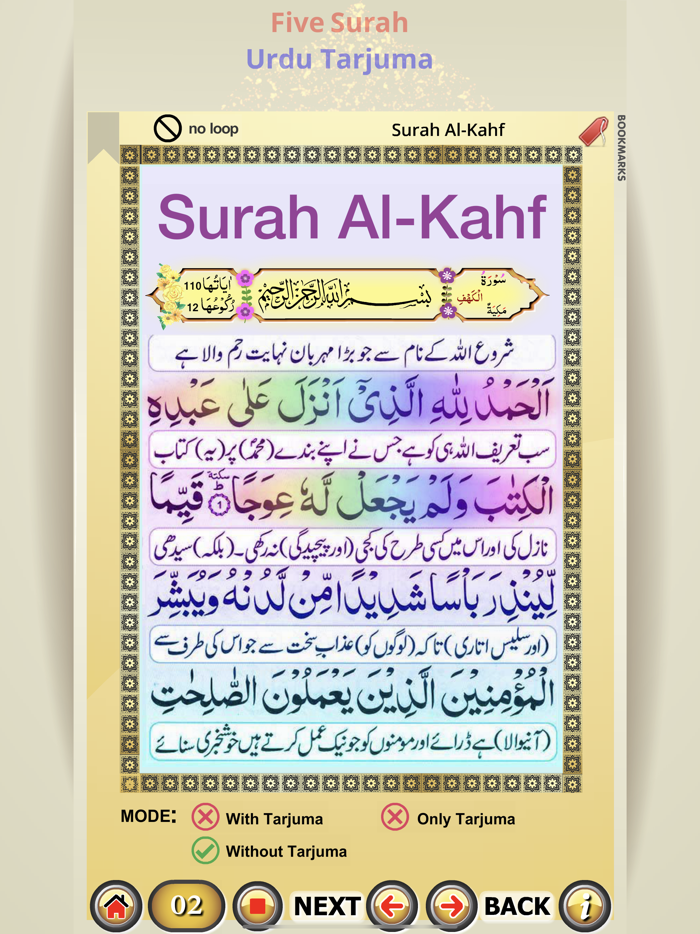 Five Surah
Urdu Tarjuma
no loop
Surah Al-Kahf
BOOKMARKS
Surah Al-Kahf
سُوْرَةُ الْكَهْفِ مَكِّيَّةٌ
بِسْمِ اللّٰهِ الرَّحْمٰنِ الرَّحِيْمِ
اٰيَاتُهَا 110
رُكُوْعُهَا 12
شروع اللہ کے نام سے جو بڑا مہربان نہایت رحم والا ہے
اَلْحَمْدُ لِلّٰهِ الَّذِيْٓ اَنْزَلَ عَلٰى عَبْدِهِ
سب تعریف اللہ ہی کو ہے جس نے اپنے بندے (محمدؐ) پر (یہ) کتاب
الْكِتٰبَ وَلَمْ يَجْعَلْ لَّهٗ عِوَجًا ؕ سكتة ۱ قَيِّمًا
نازل کی اور اس میں کسی طرح کی کجی (اور پیچیدگی) نہ رکھی۔ (بلکہ) سیدھی
لِّيُنْذِرَ بَاْسًا شَدِيْدًا مِّنْ لَّدُنْهُ وَيُبَشِّرَ
(اور سلیس اتاری) تاکہ (لوگوں کو) عذاب سخت سے جو اس کی طرف سے
الْمُؤْمِنِيْنَ الَّذِيْنَ يَعْمَلُوْنَ الصّٰلِحٰتِ
(آنیوالا) ہے ڈرائے اور مومنوں کو جو نیک عمل کرتے ہیں خوشخبری سنائے
MODE:
With Tarjuma
Only Tarjuma
Without Tarjuma
02
NEXT
BACK
i